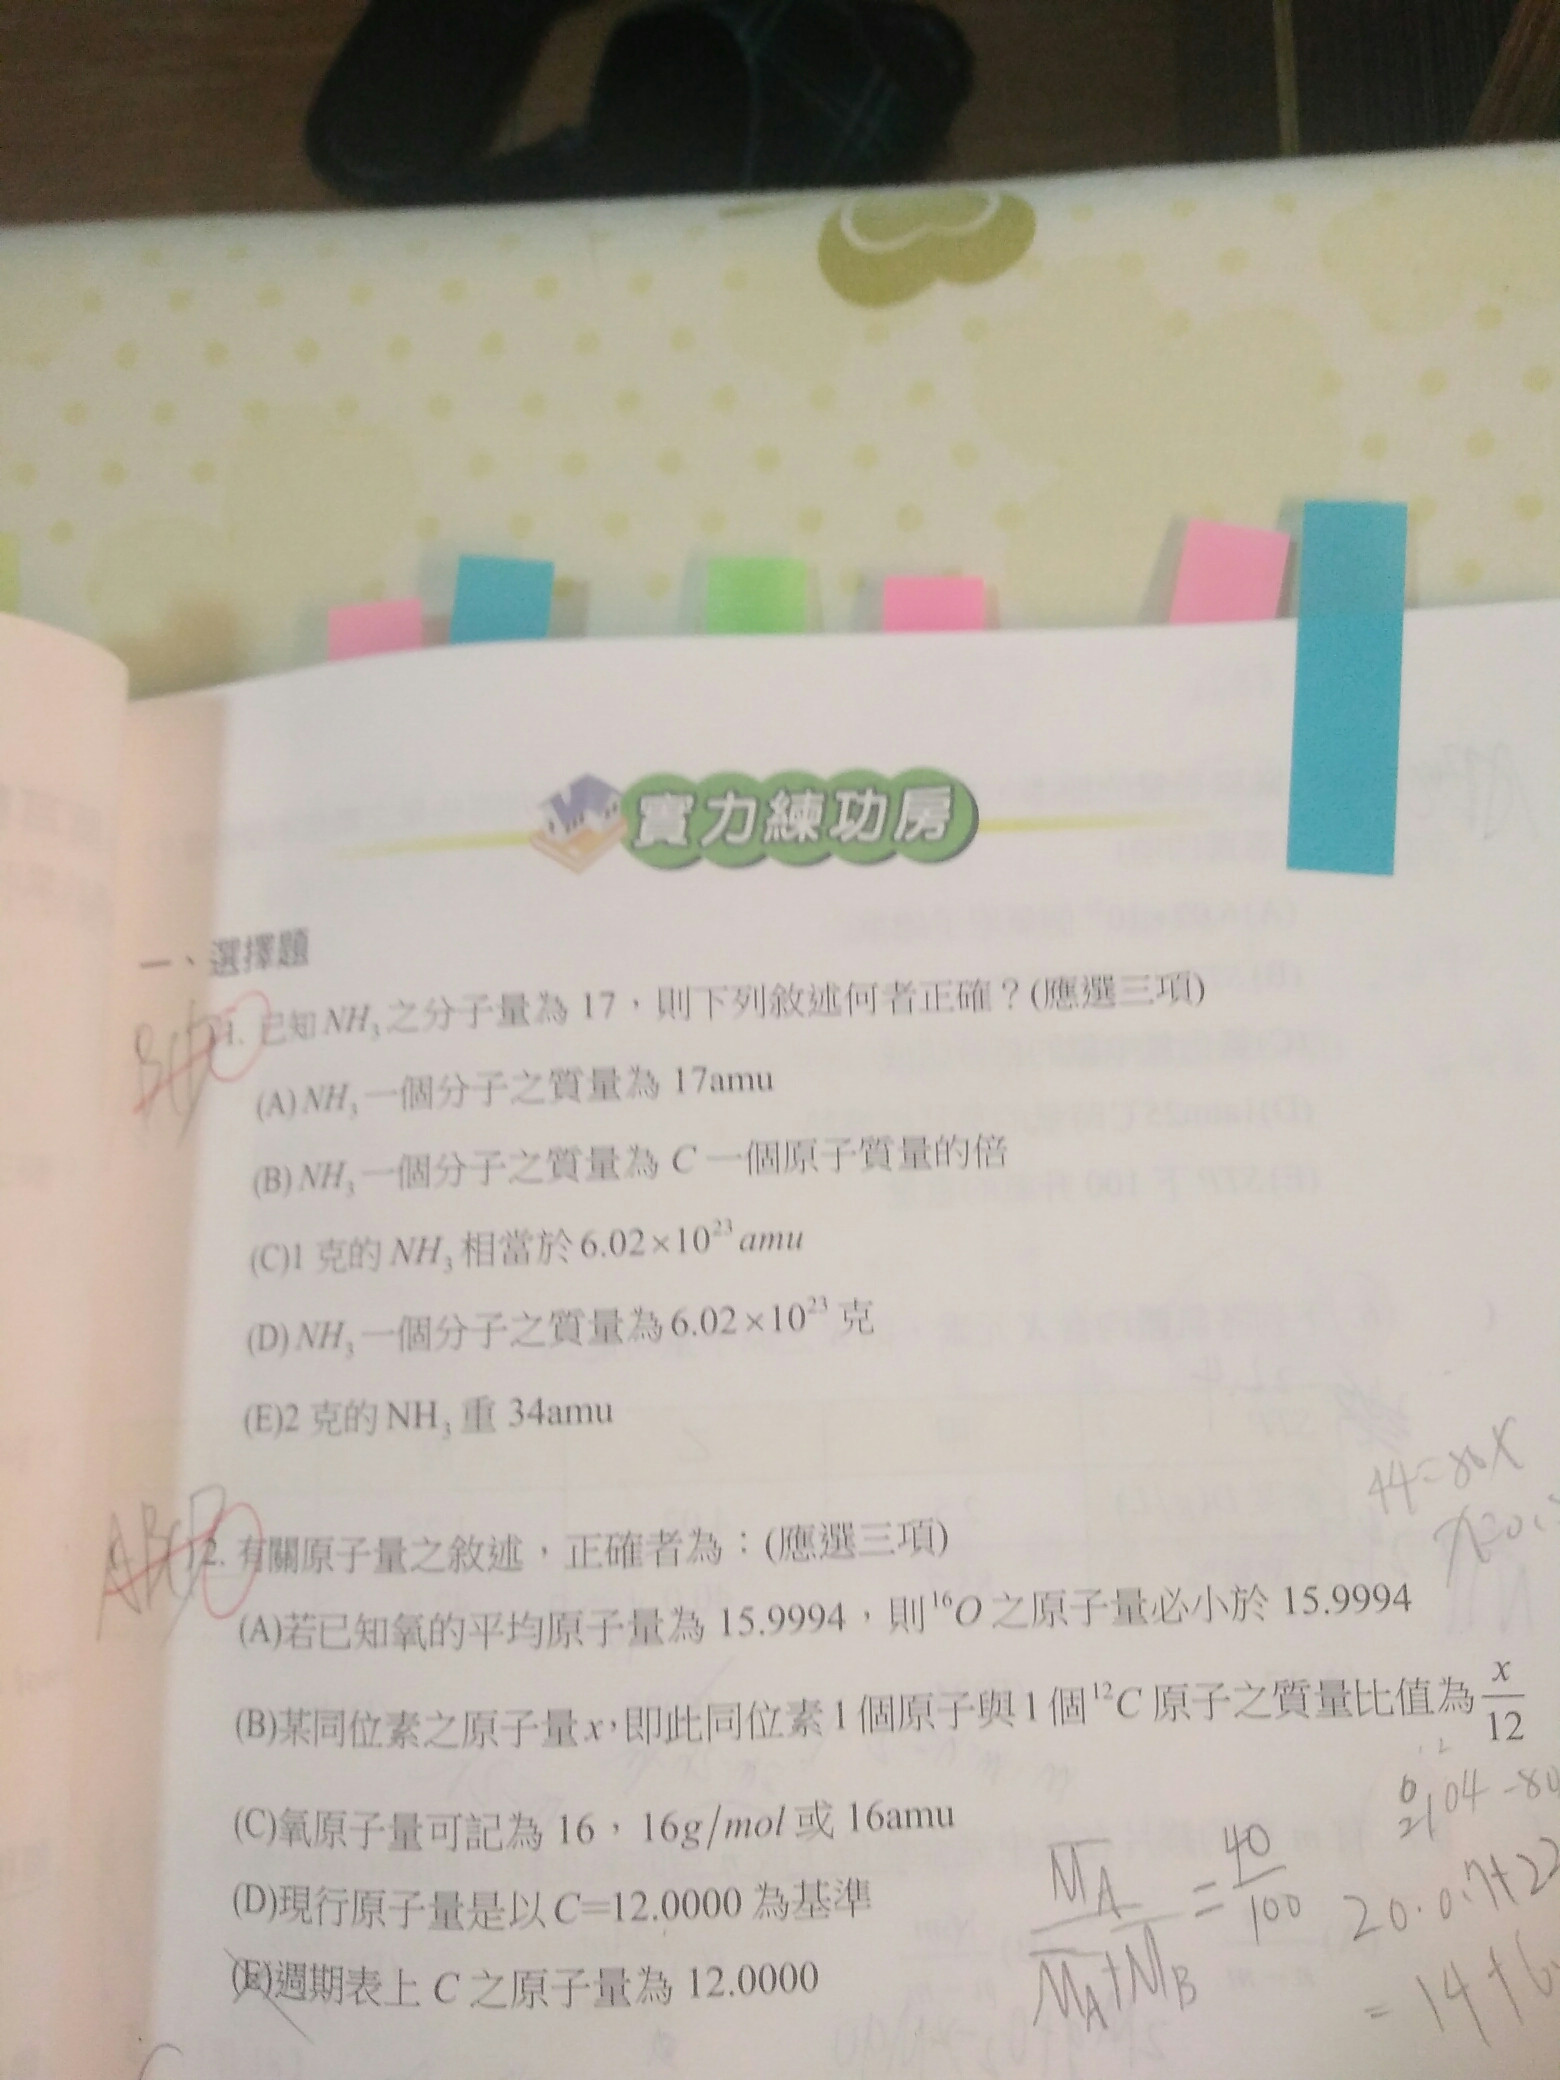 實力練功房
一、選擇題
1. 已知NH₃之分子量為 17，則下列敘述何者正確？(應選三項)
(A)NH₃一個分子之質量為 17amu
(B)NH₃一個分子之質量為 C 一個原子質量的倍
(C)1 克的 NH₃相當於6.02×10²³ amu
(D)NH₃一個分子之質量為6.02×10²³ 克
(E)2 克的NH₃重 34amu
44=80X
ABCD
2. 有關原子量之敘述，正確者為：(應選三項)
(A)若已知氧的平均原子量為 15.9994，則¹⁶O之原子量必小於 15.9994
(B)某同位素之原子量x，即此同位素1個原子與1個¹²C原子之質量比值為x/12
(C)氧原子量可記為 16，16g/mol 或 16amu
(D)現行原子量是以C=12.0000 為基準
(E)週期表上 C 之原子量為 12.0000
MA/MA+MB = 40/100